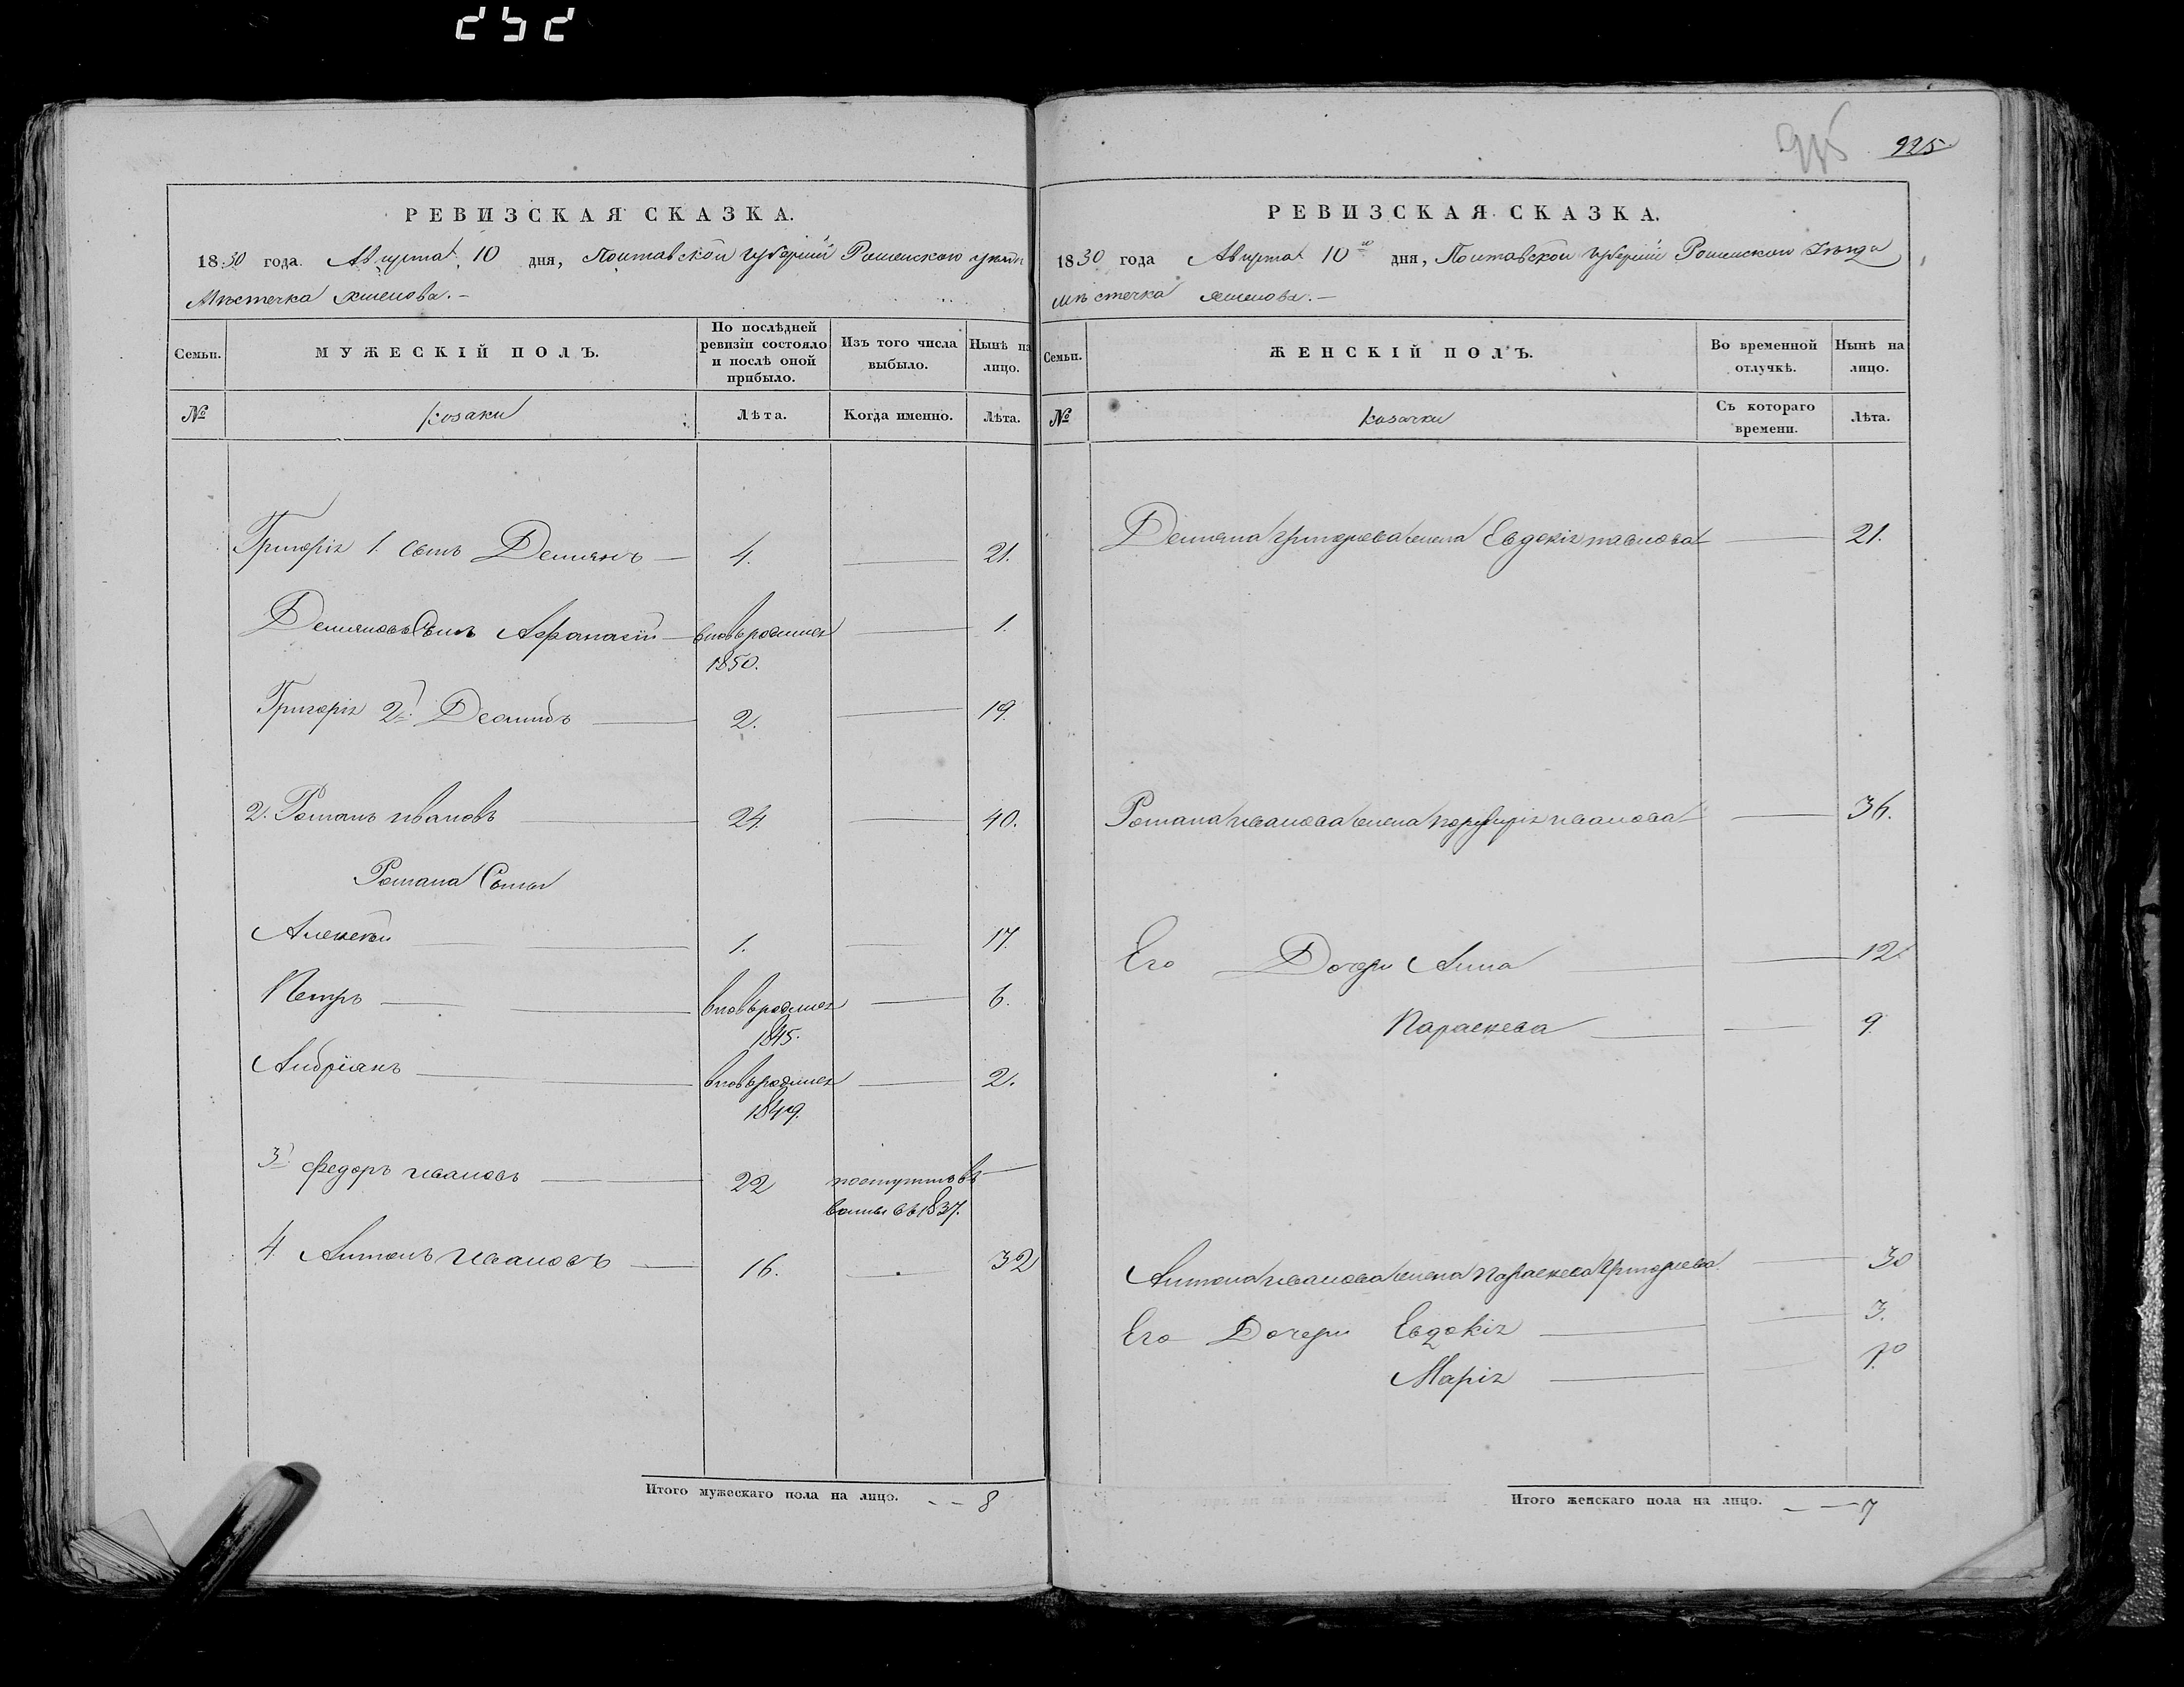 252
925
925
РЕВИЗСКАЯ СКАЗКА.
1850 года Августа 10 дня, Полтавской губерніи Роменского уезда
Мѣстечка
Семьи. МУЖЕСКІЙ ПОЛЪ. По послѣдней ревизіи состояло и послѣ оной прибыло. Изъ того числа выбыло. Нынѣ на лицо.
№ козаки Лѣта. Когда именно. Лѣта.
Григорія 1. сынъ Демьянъ — 4. — 21.
Демьяновъ Сынъ Афанасій — вновьродился — 1.
1850.
Григорія 2й — 2. — 19.
2. Романъ ивановъ — 24. — 40.
Романа Сыны
Алексѣй — 1. — 17.
Петръ — вновьродился — 6.
1845.
Андріянъ — вновьродился — 2.
1849.
3й Федоръ ивановъ — 22 поступилъ въ —
въ 1837.
4. Антонъ Ивановъ — 16. — 32
Итого мужескаго пола на лицо. - - 8
РЕВИЗСКАЯ СКАЗКА.
1850 года Августа 10го дня, Полтавской губерніи Роменского уѣзда
мѣстечка
Семьи. ЖЕНСКІЙ ПОЛЪ. Во временной отлучкѣ. Нынѣ на лицо.
№ козачки Съ котораго времени. Лѣта.
Демьяна григориева жена Евдокія павлова — 21.
Романа иванова жена порфирія иванова — 36.
Его Дочери Анна — 12.
Параскева — 9.
Антона иванова жена Параскева Григориева — 30
Его Дочери Евдокія — 3.
Марія — 1.
Итого женскаго пола на лицо. — — 7